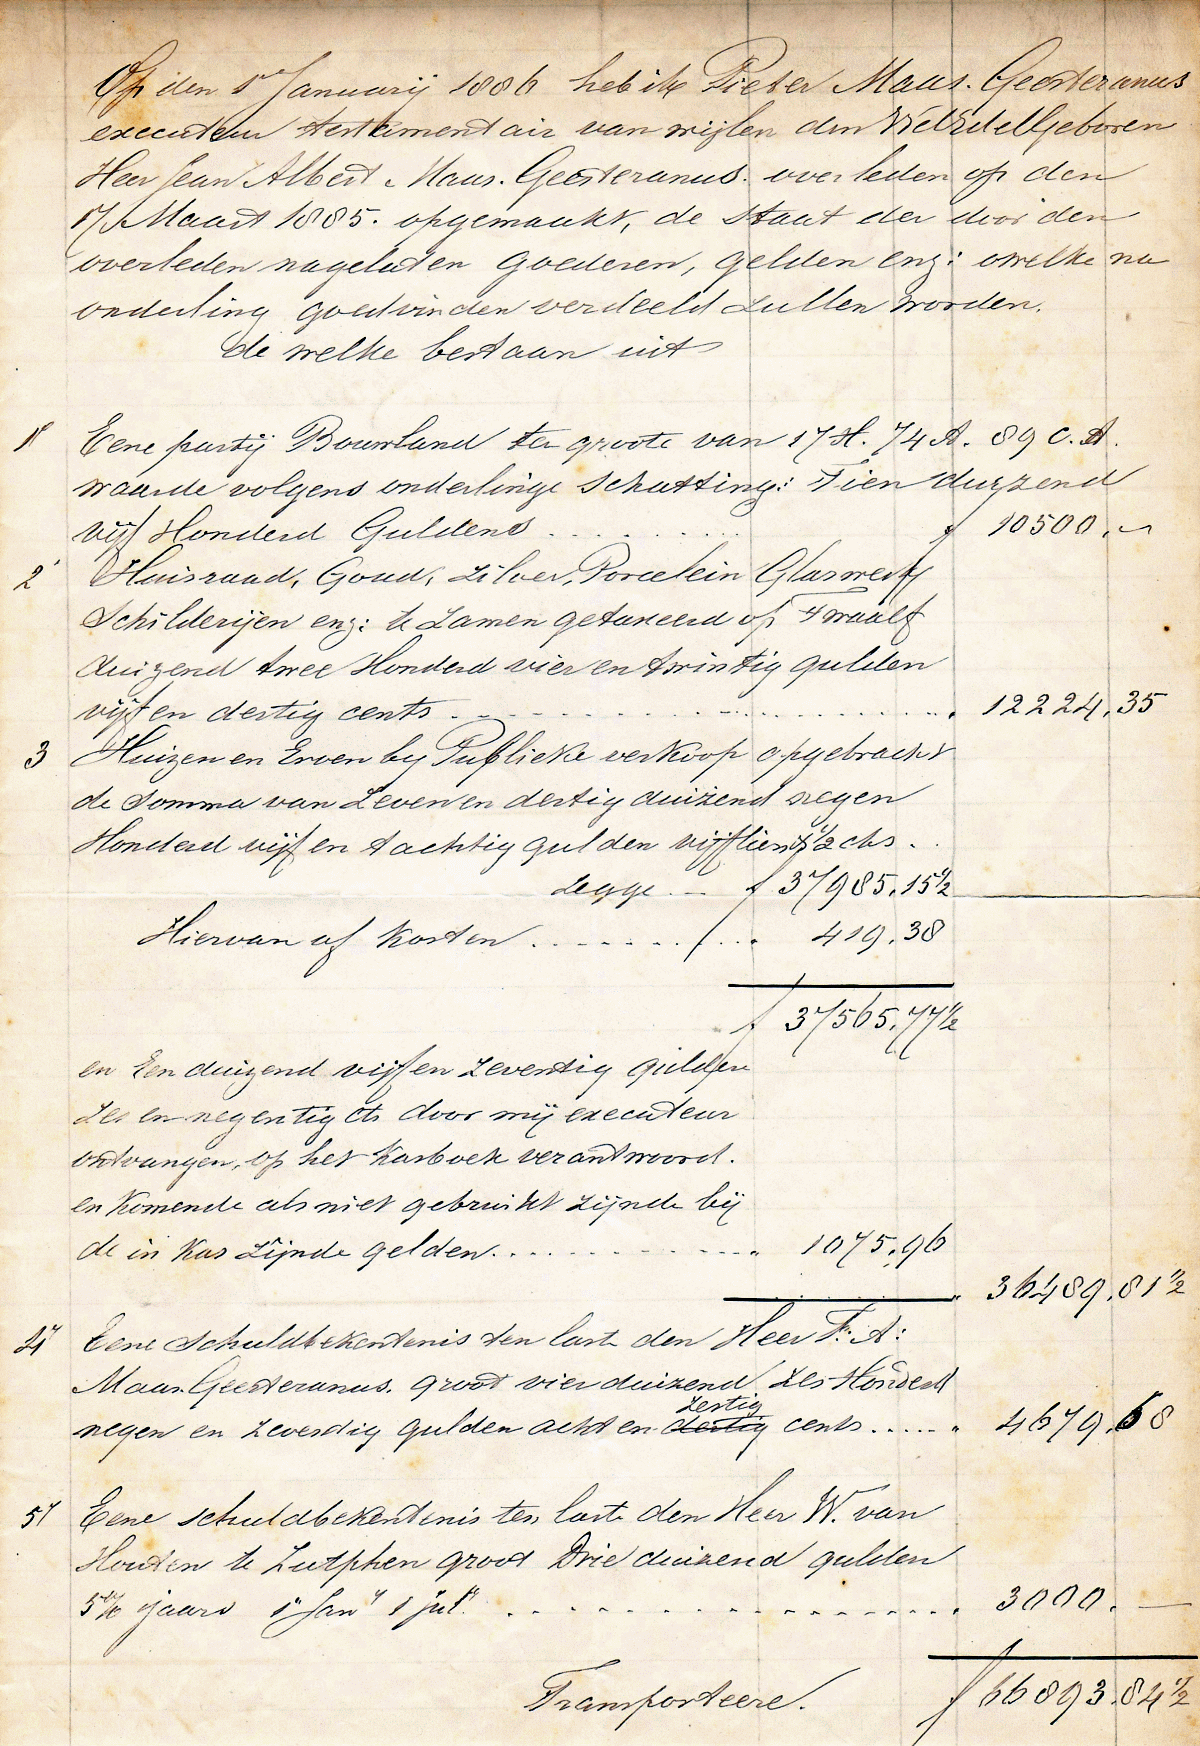 Op den 1e Januarij 1886 heb ik Pieter Maas. Geesteranus
executeur testamentair van wijlen den WelEdelGeboren
Heer Jean Albert Maas. Geesteranus. overleden op den
17 Maart 1885. opgemaakt, de Staat der door den
overleden nagelaten goederen, gelden enz: welke na
onderling goedvinden verdeeld zullen worden.
de welke bestaan uit
1e Eene partij Bouwland ter groote van 17 H. 74 A. 89 C.A.
waarde volgens onderlinge schatting: Tien duizend
vijf Honderd Guldens . . . . . . . f 10500.—
2e Huisraad, Goud, Zilver, Porcelein Glaswerk
Schilderijen enz: te zamen getaxeerd op Twaalf
duizend twee Honderd vier en twintig gulden
vijf en dertig cents . . . . . . . . . . " 12224.35
3 Huizen en Erven by Publieke verkoop opgebracht
de somma van Zeven en dertig duizend negen
Honderd vijf en tachtig gulden vijftien ½ cts.
Zegge — f 37985.15½
Hiervan af Kosten . . . . . . . . " 419.38
f 37565.77½
en Een duizend vijf en Zeventig gulden
Zes en negentig cts door mij executeur
ontvangen, op het Kasboek verantwoord.
en Komende als niet gebruikt zijnde bij
de in Kas Zijnde gelden. . . . . . . . " 1075.96
" 36489.81½
4e Eene Schuldbekentenis ten laste den Heer F: A:
Maas. Geesteranus. groot vier duizend Zes Honderd
zestig
negen en Zeventig gulden acht en dertig cents . . . . . " 4679.68
5e Eene schuldbekentenis ten laste den Heer W. van
Houten te Zutphen groot Drie duizend gulden
5% jaars 1e Jany 1 july . . . . . . . . . . " 3000.—
Transporteere. f 66893.84½